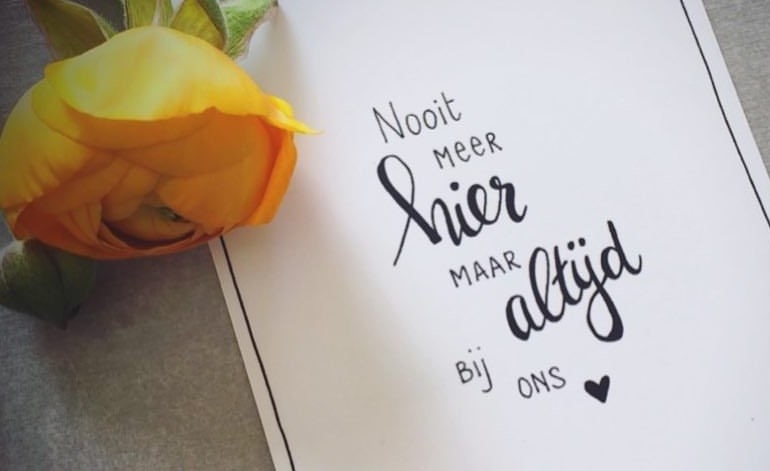 Nooit
MEER
hier
MAAR altijd
Bij ONS